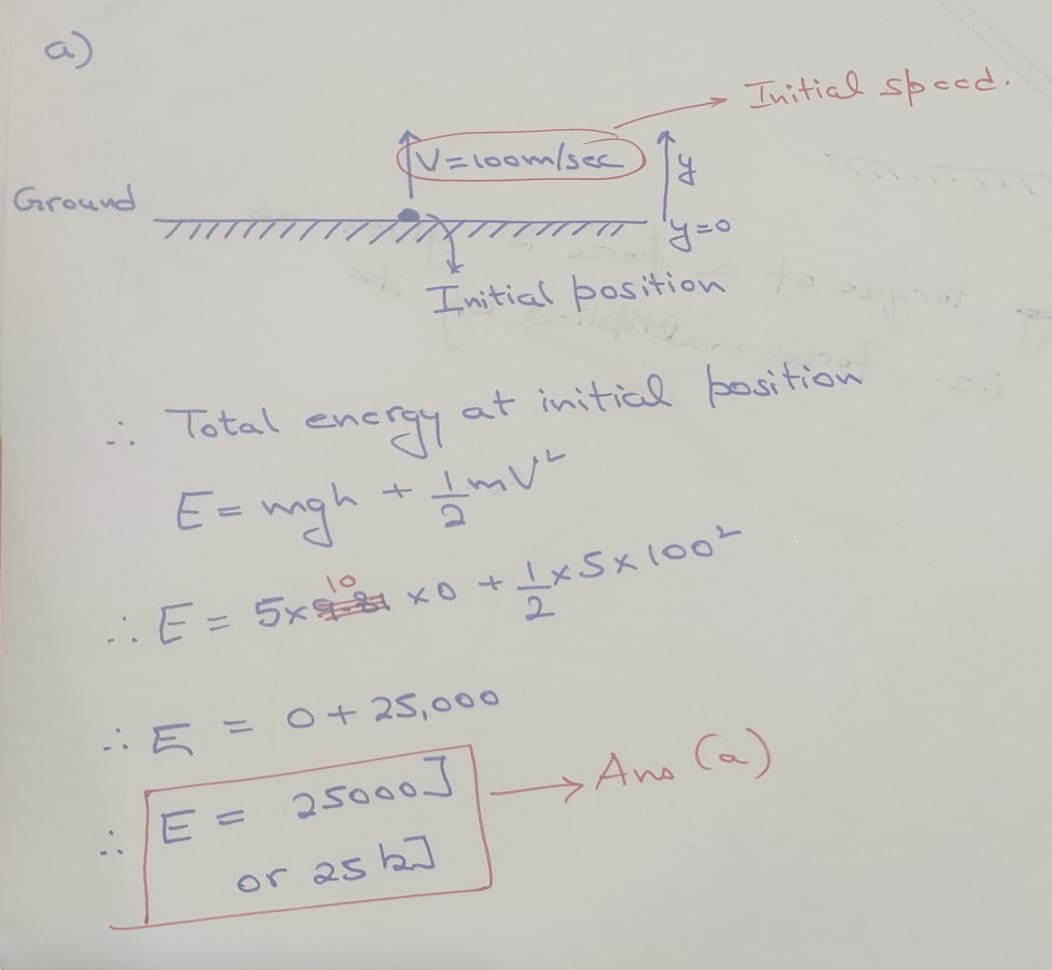 a)
Initial speed.
V=100m/sec
y
Ground
y=0
Initial position
∴ Total energy at initial position
E = mgh + 1/2 mV²
∴ E = 5×10 ×0 + 1/2 ×5×100²
∴ E = 0+25,000
∴ E = 25000J
or 25kJ
Ans (a)